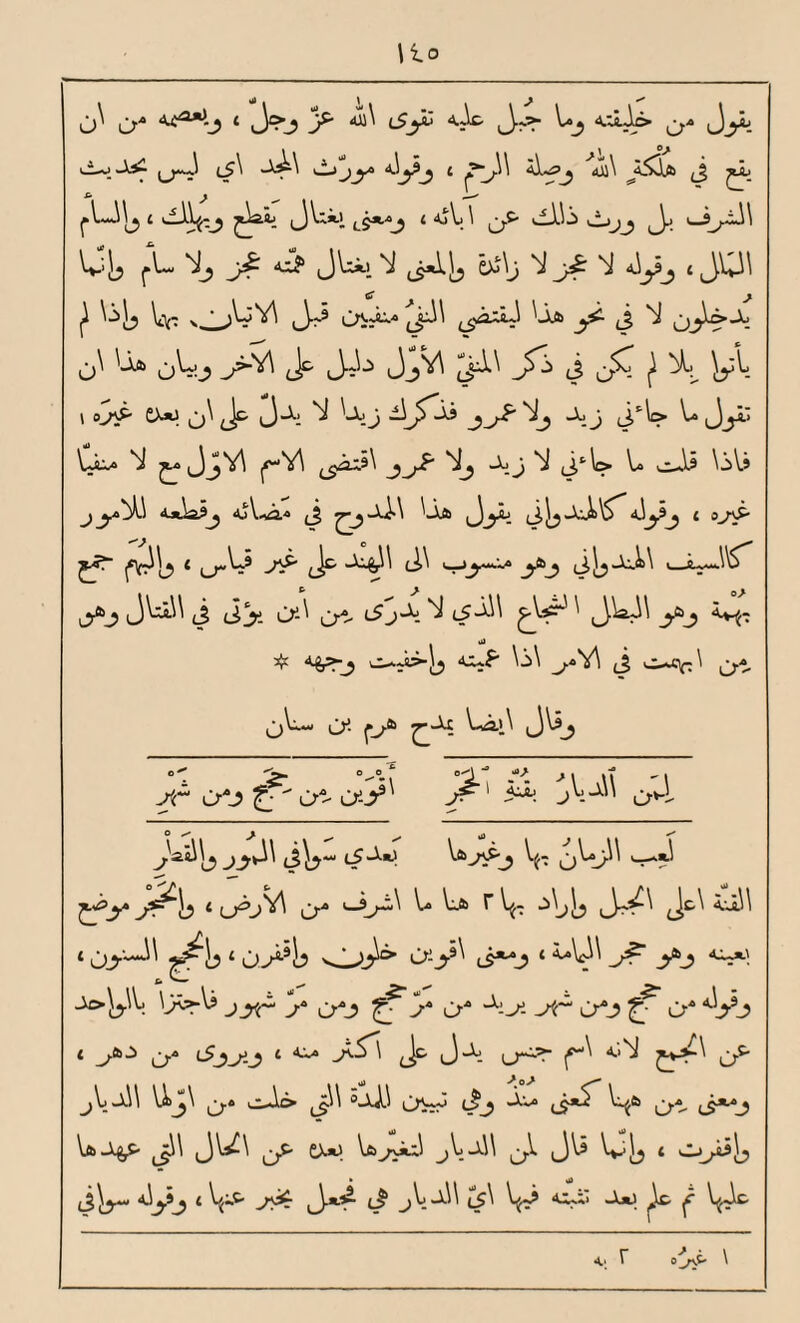 ١٤٥
يقول من خليقته وما جبل عليه تقوى الله عزّ وجلّ ، ويعصمه من أن
يقع في هلكةٍ اللهُ وصلة الرحِم ، وقوله مورّث المجد أي ليس بمحدث
الشرف بل ورث ذلك عن آبائه ، ومعنى يغتال يقطع ويهلك ، والسأم
الملال ، وقوله لا عجز لا والمعنى لا يغتال همّته عجز ولا سأم وإنما
يدخلون لا في نحو هذا لمعنى النفي المستقبل قبل الإيجاب بها وإذا لم
يأتوا بلا لم يكن في ذكر النفي الأوّل دليل على الآخر وبيان هذا أن
تقول ما جاءني زيد ولا عمرو فذكرك زيدا لا يدلّ على أن بعده غيره ١
فإذا قلت ما جاءني لا زيد ولا عمرو اقتضى الاسم الأوّل مع لا منفيًّا
غيره ، وقوله كالهندواني يقول هذا الممدوح في مضائه وقطعه للأمور
كالسيف الهندواني وهو منسوب الى الهند على غير قياس ، والبهم جمع
بهمة وهو البطل الشجاع الذي لا يدرى من أين يؤتى في القتال وهو
من أبهمت في الأمر إذا عميته وأخفيت وجهه *
وقال أيضا يمدح هرم بن سنان
لمن الديار بقنة الحجر أقوين من حجج ومن شهر
لعب الزمان بها وغيّرها بعدي سوافي المور والقطر
القنة أعلى الجبل وأراد بها ٢ هنا ما أشرف من الأرض ، والحجر موضع
بعينه وهو حجر اليمامة ، ومعنى أقوين خلون وأقفرن ، والحجج السنون ،
وقوله من حجج ومن شهر يريد من مرّ حجج ومن مرّ شهور فاجتزأ بالواحد
عن الجميع لأنه اسم جنس يدلّ على أكثر منه ، ويروى من دهر ،
ومعنى من ههنا كمعنى مُذ وفي تبيين للمدّة التي خلت من أزمنة الديار
واقفرت ، وإنما قال لمن الديار لتغيّرها بعده عن الحال التي عهدها
عليها ثم علم بعد تثبته فيها أيّ الديار هي فجعل يخبر عنها ، وقوله سوافي
١ غيرُه ٢ به